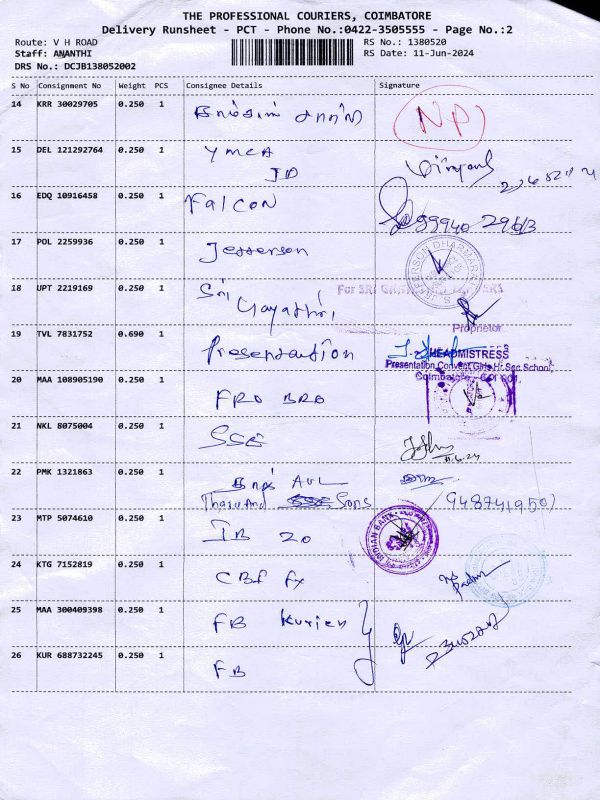 THE PROFESSIONAL COURIERS, COIMBATORE
Delivery Runsheet - PCT - Phone No.:0422-3505555 - Page No.:2
Route: V H ROAD
Staff: ANANTHI
DRS No.: DCJB138052002
RS No.: 1380520
RS Date: 11-Jun-2024
S No Consignment No Weight PCS Consignee Details Signature
14 KRR 30029705 0.250 1 NP
15 DEL 121292764 0.250 1 YMCA
JD
16 EDQ 10916458 0.250 1 Falcon
99940 29613
17 POL 2259936 0.250 1 Jefferson
18 UPT 2219169 0.250 1 Sri
Gayathri
For SRI
Proprietor
19 TVL 7831752 0.690 1 Presentation
HEADMISTRESS
Presentation Convent Girls Hr.Sec.School,
Coimbatore
20 MAA 108905190 0.250 1 FRO BRO
21 NKL 8075004 0.250 1 SSE
11.6.24
22 PMK 1321863 0.250 1 AVL
Sons
23 MTP 5074610 0.250 1 IB 20
INDIAN BANK
24 KTG 7152819 0.250 1 CBE FX
25 MAA 300409398 0.250 1 FB Kurien
26 KUR 688732245 0.250 1 FB